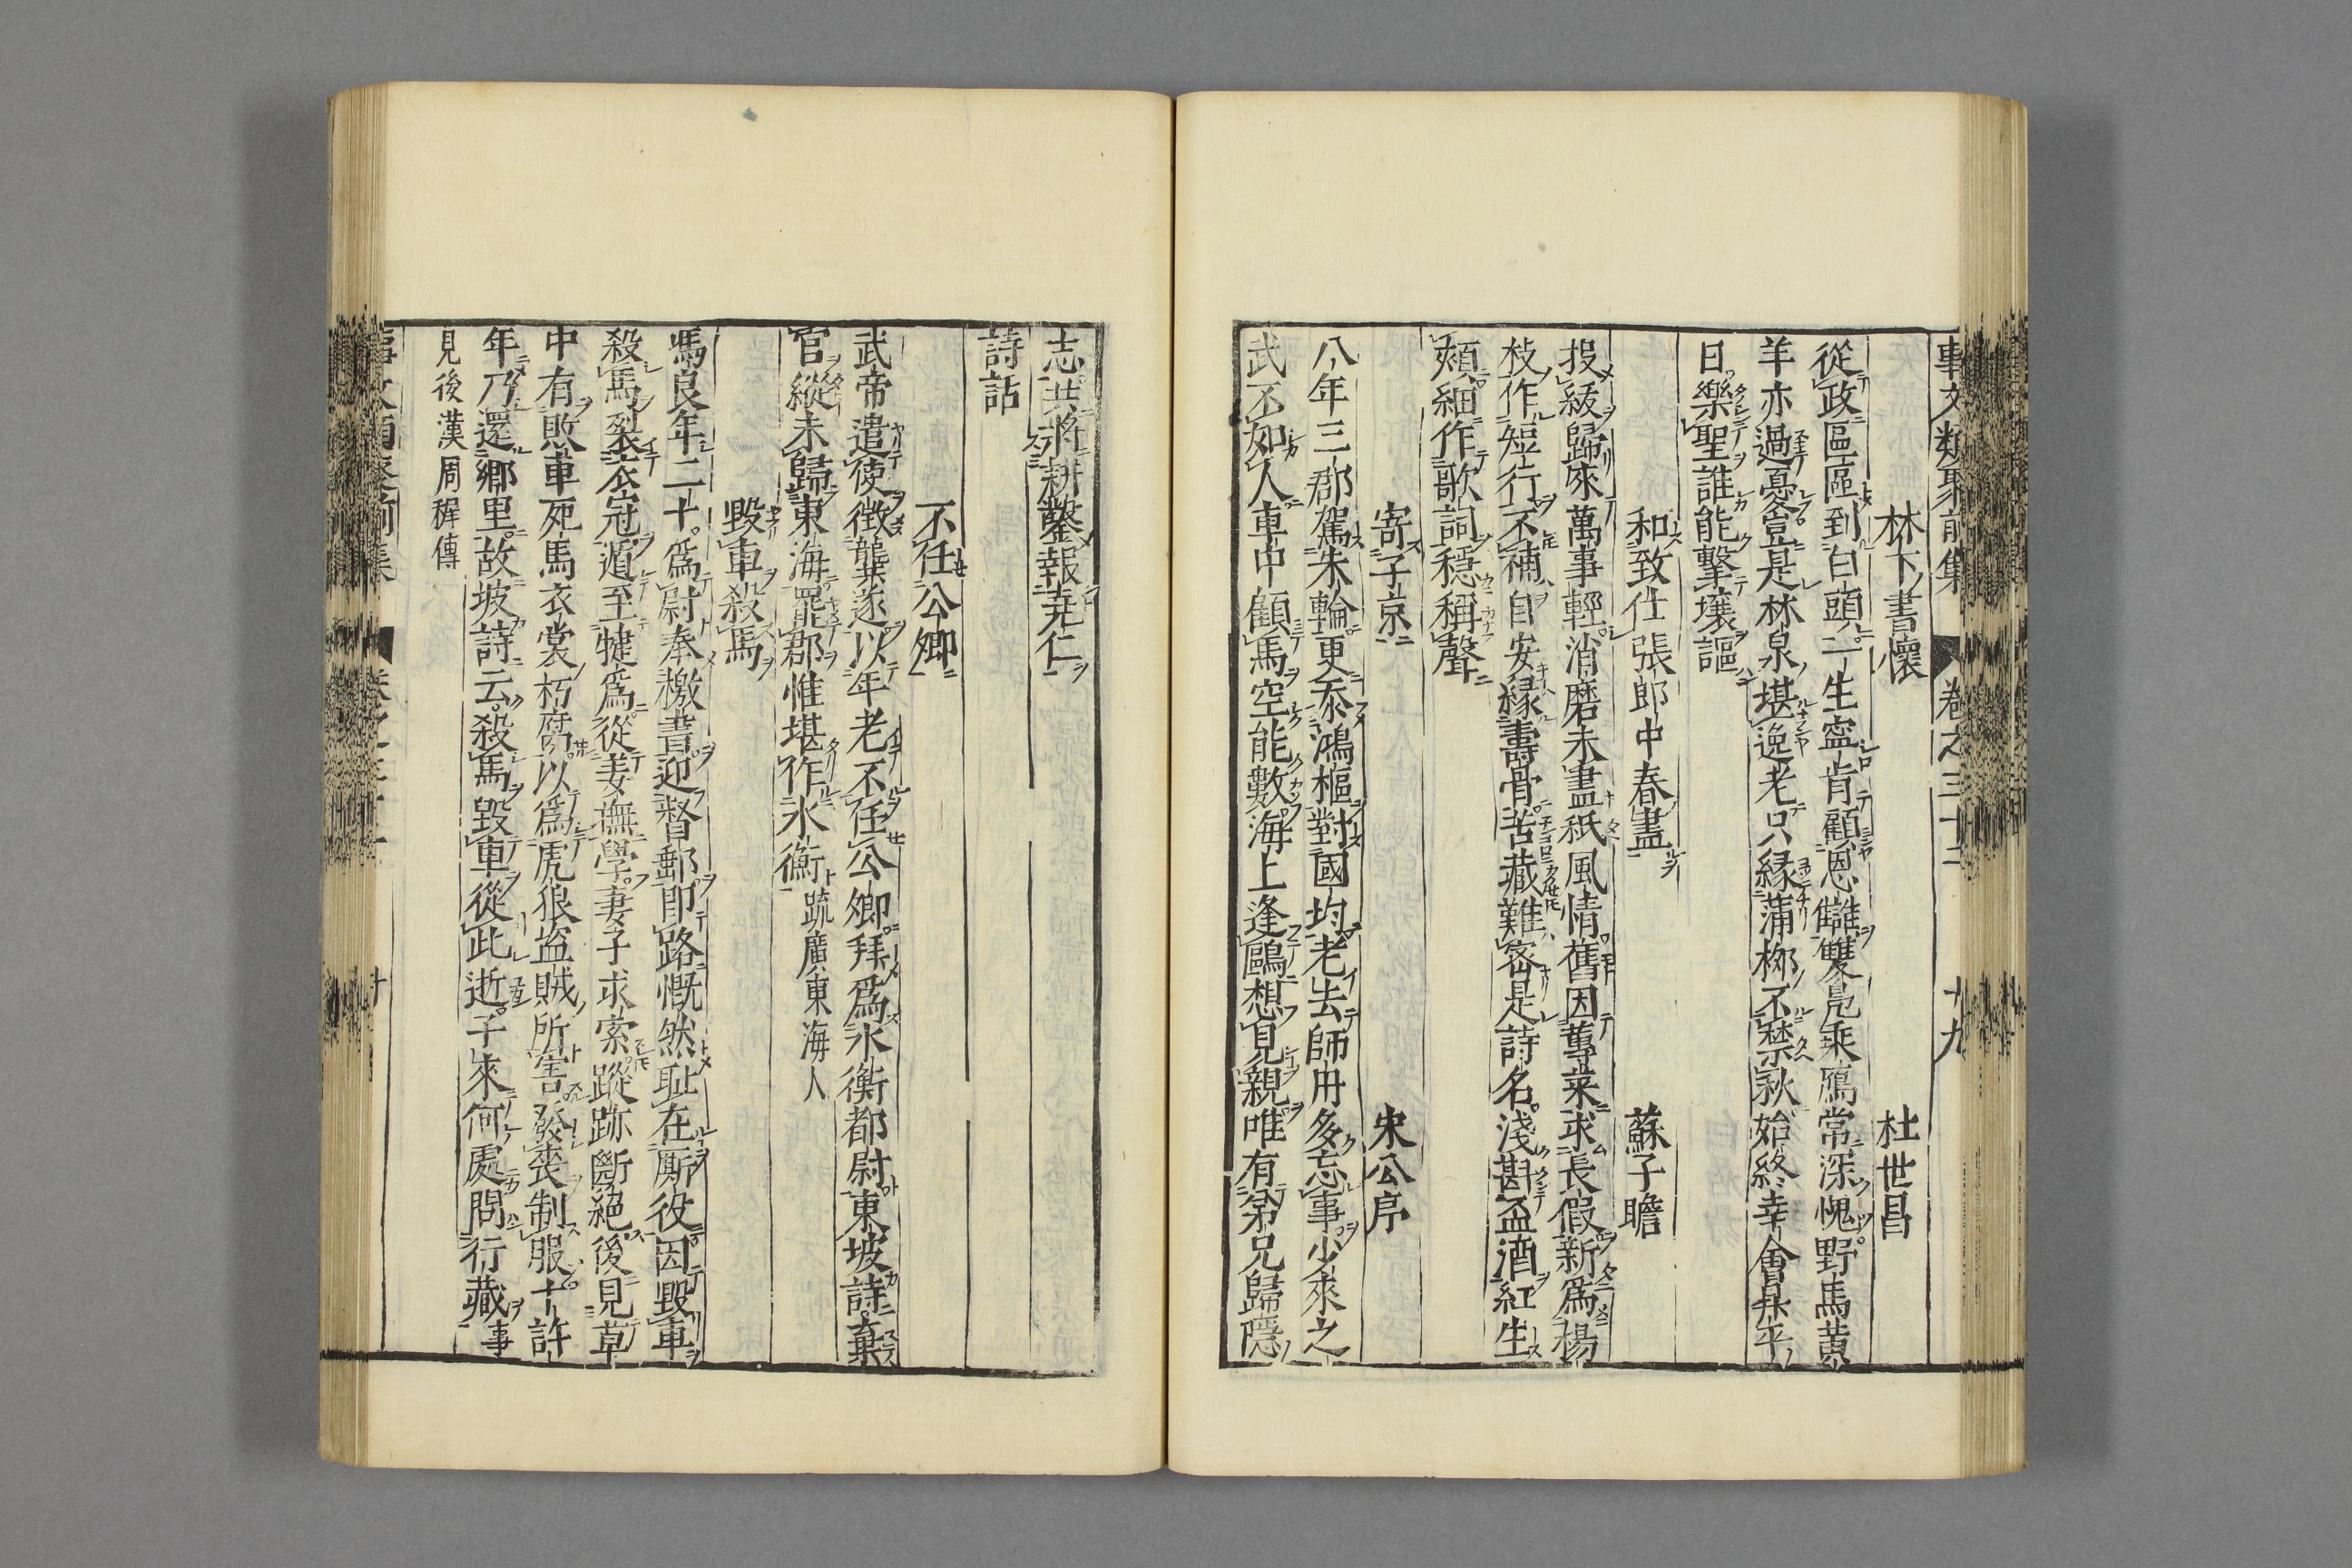 事文類聚前集 卷之三十三 十九
林下書懷 杜世昌
從政區區到白頭一生寧肯顧恩讎雙鳧乘鴈常深愧野馬黃
羊亦過憂豈是林泉堪逸老只緣蒲柳不禁秋始終幸會昇平
日樂聖誰能擊壤謳
和致仕張郎中春晝 蘇子瞻
投紱歸來萬事輕消磨未盡秖風情舊因蓴菜求長假新為楊
枝作短行不禱自安緣壽骨苦藏難密是詩名淺斟盃酒紅生
頰細作歌詞穩稱聲
寄子京 宋公序
八年三郡駕朱輪更忝鴻樞對國均老去師丹多忘事少來之
武不如人車中顧馬空能數海上逢鷗想見親唯有弟兄歸隱
志共將耕鑿報堯仁
詩話
不任公卿
武帝遣使徵龔遂以年老不任公卿拜為水衡都尉東坡詩棄
官縱未歸東海罷郡惟堪作水衡疏廣東海人
毀車殺馬
馮良年三十為尉奉檄書迎督郵即路慨然耻在廝役因毀車
殺馬裂衣冠遁至犍為從姜撫學妻子求索蹤跡斷絕後見草
中有敗車死馬衣裳朽腐以為虎狼盜賊所害發喪制服十許
年乃還鄉里故坡詩云殺馬毀車從此逝子來何處問行藏事
見後漢周穉傳